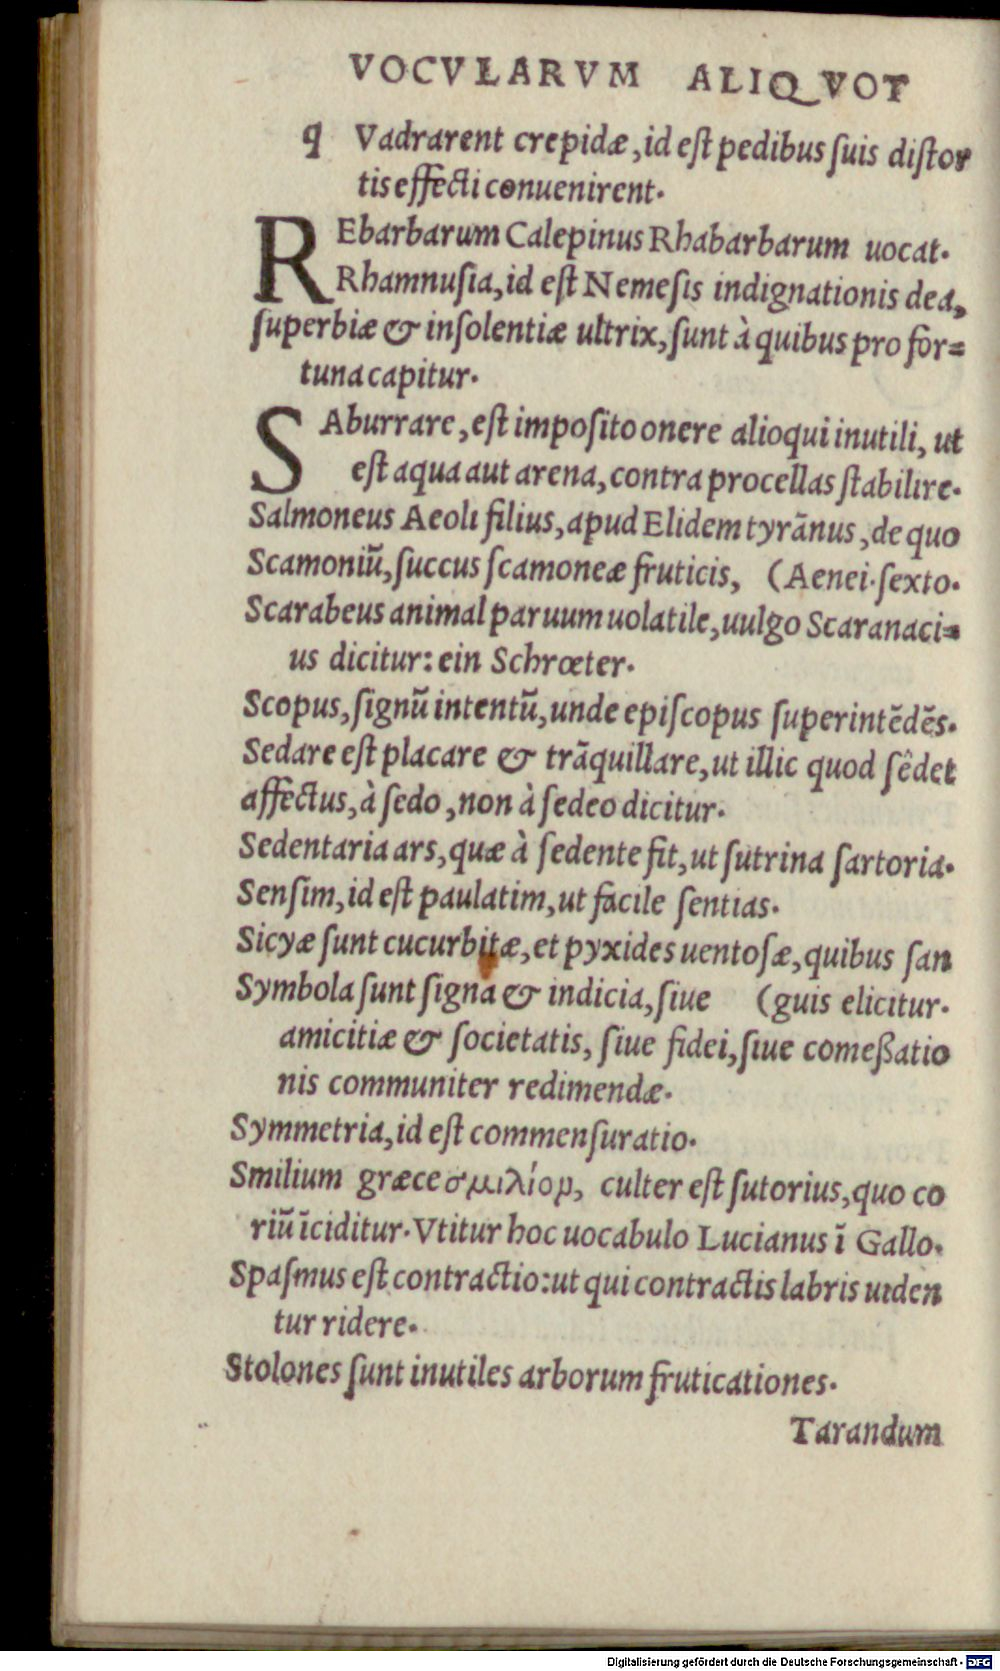 VOCVLARVM ALIQVOT
q Vadrarent crepidæ, id eſt pedibus ſuis diſtor
tis effecti conuenirent.
REbarbarum Calepinus Rhabarbarum uocat.
Rhamnuſia, id eſt Nemeſis indignationis dea,
ſuperbiæ & inſolentiæ ultrix, ſunt à quibus pro for=
tuna capitur.
SAburrare, eſt impoſito onere alioqui inutili, ut
eſt aqua aut arena, contra procellas ſtabilire.
Salmoneus Aeoli filius, apud Elidem tyrãnus, de quo
Scamoniũ, ſuccus ſcamoneæ fruticis, (Aenei. ſexto.
Scarabeus animal paruum uolatile, uulgo Scaranaci=
us dicitur: ein Schrœter.
Scopus, ſignũ intentũ, unde epiſcopus ſuperintẽdẽs.
Sedare eſt placare & trãquillare, ut illic quod ſêdet
affectus, à ſedo, non à ſedeo dicitur.
Sedentaria ars, quæ à ſedente fit, ut ſutrina ſartoria.
Senſim, id eſt paulatim, ut facile ſentias.
Sicyæ ſunt cucurbitæ, et pyxides uentoſæ, quibus ſan
Symbola ſunt ſigna & indicia, ſiue (guis elicitur.
amicitiæ & ſocietatis, ſiue fidei, ſiue comeßatio
nis communiter redimendæ.
Symmetria, id eſt commenſuratio.
Smilium græce σμιλίον, culter eſt ſutorius, quo co
riũ ĩciditur. Vtitur hoc uocabulo Lucianus ĩ Gallo.
Spaſmus eſt contractio: ut qui contractis labris uiden
tur ridere.
Stolones ſunt inutiles arborum fruticationes.
Tarandum
Digitalisierung gefördert durch die Deutsche Forschungsgemeinschaft - DFG